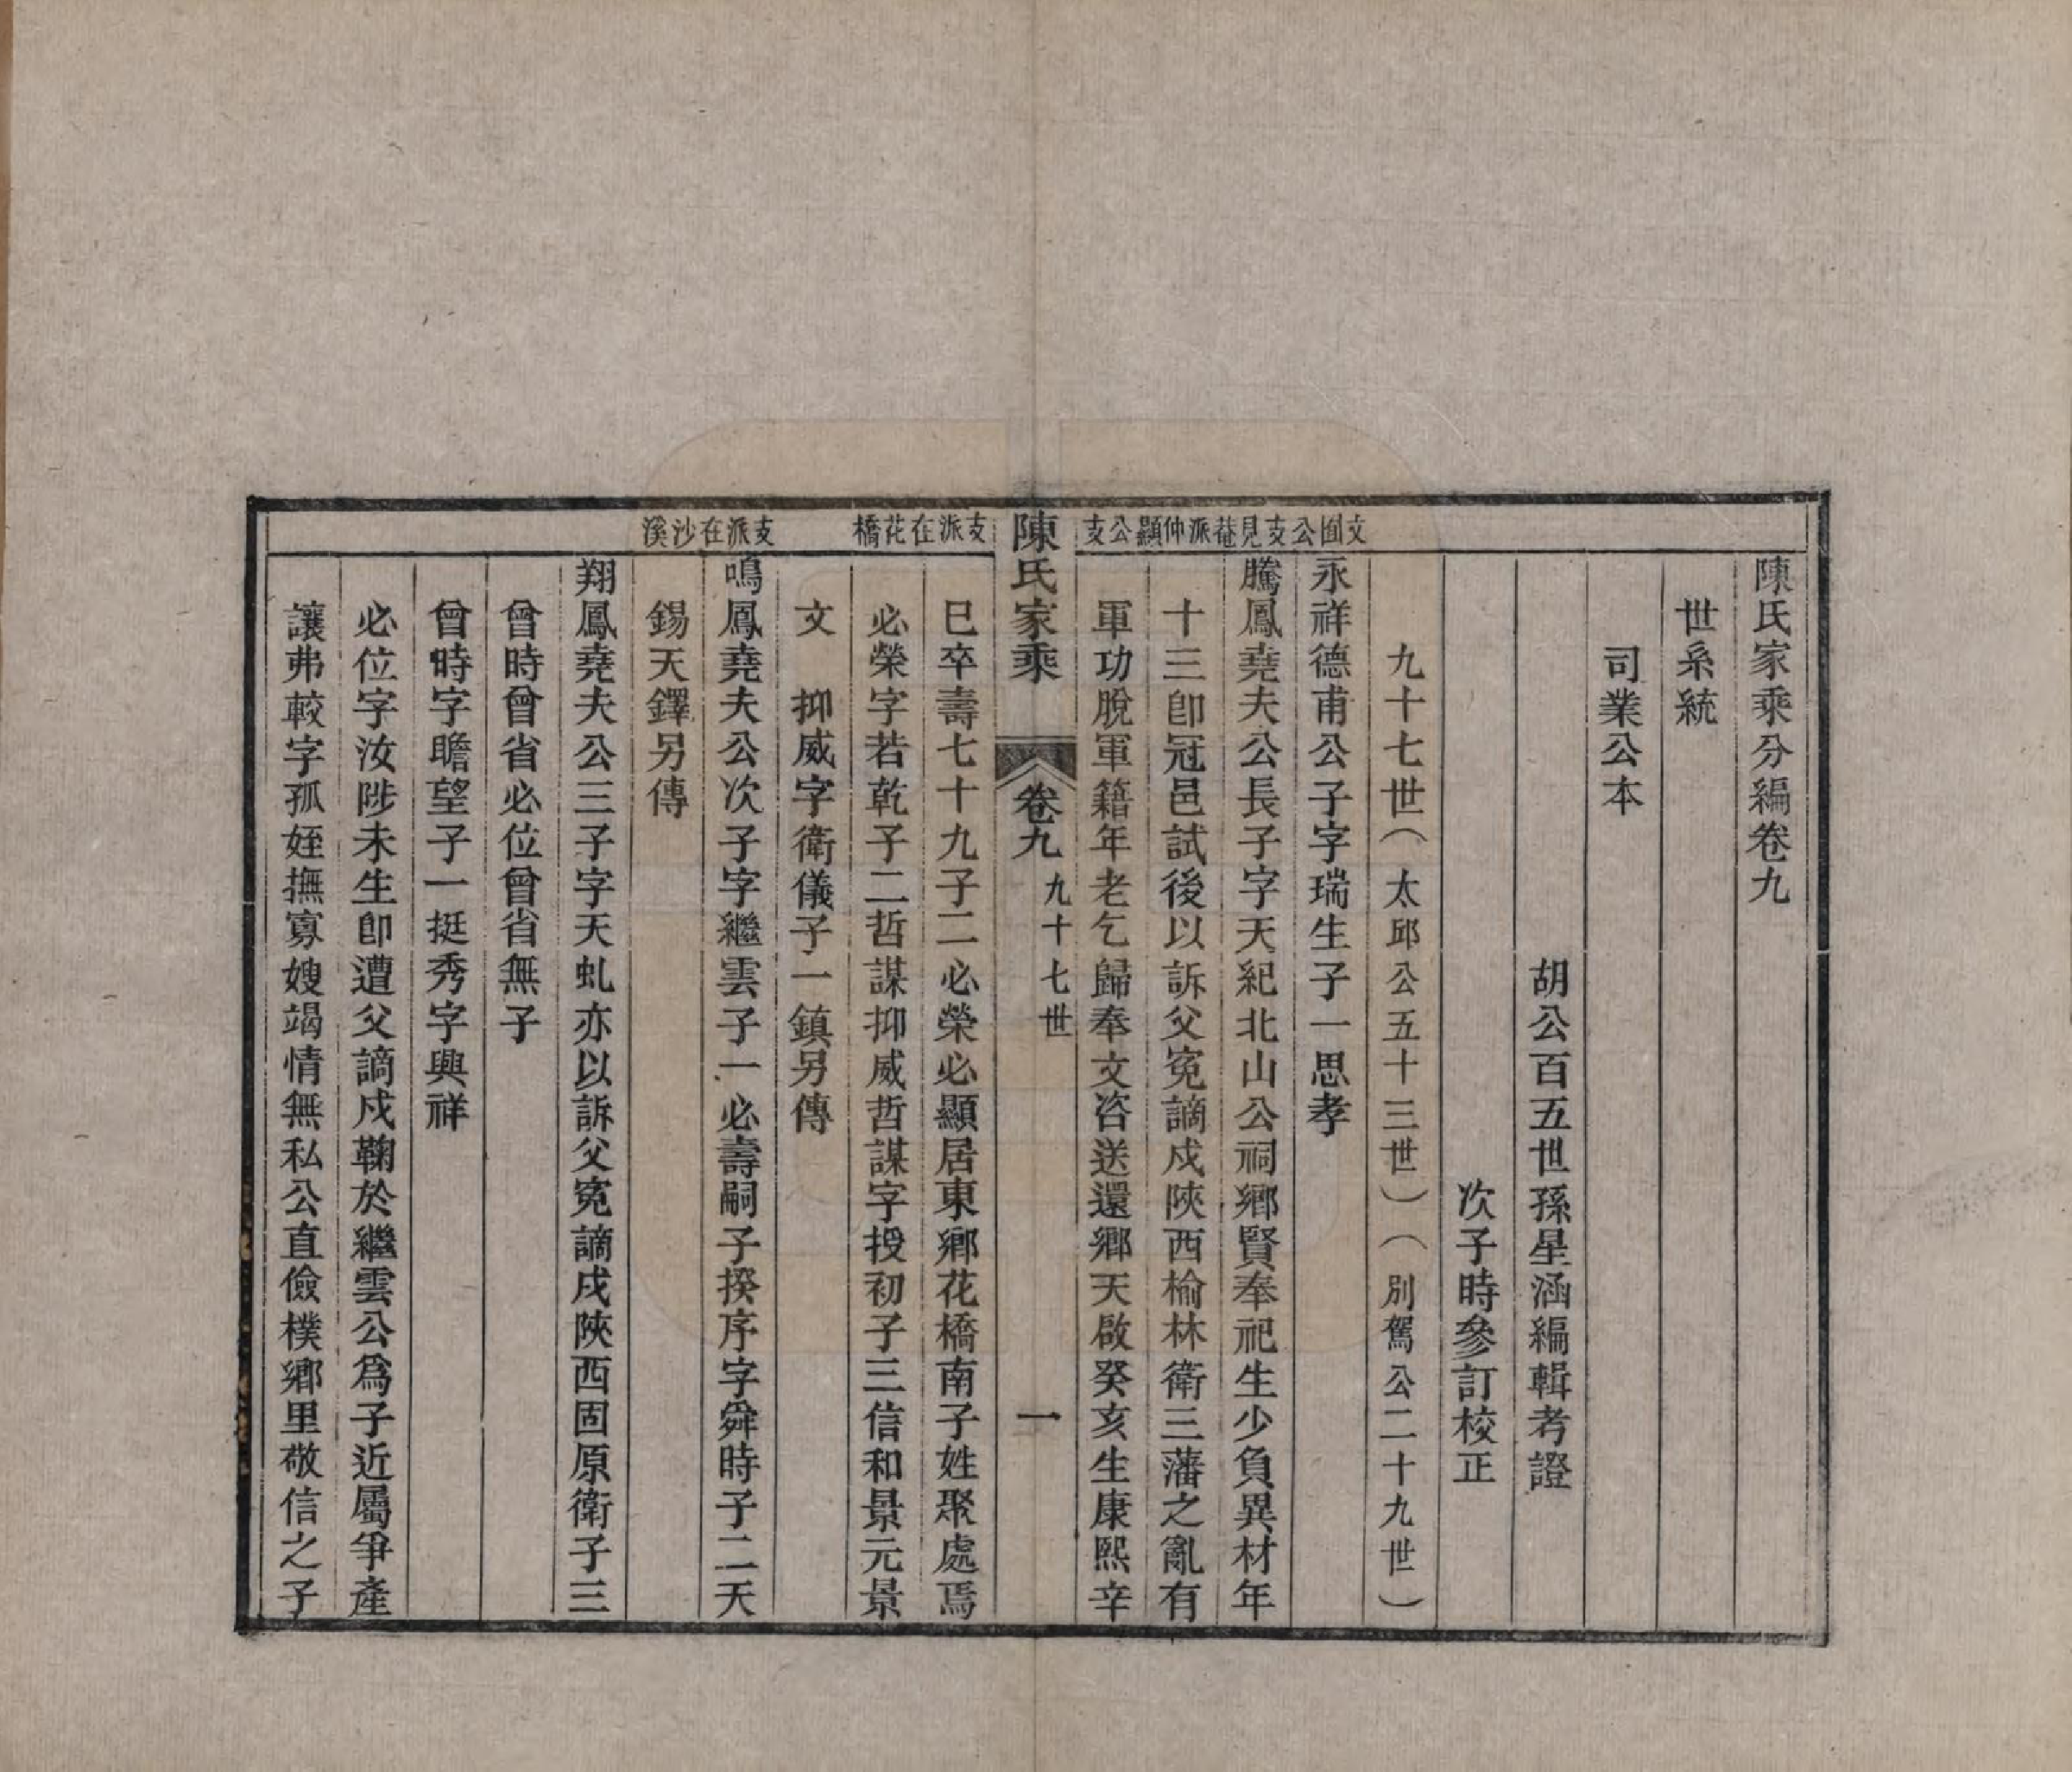 陳氏家乘分編卷九
世系統
司業公本
胡公百五世孫星涵編輯考證
次子時參訂校正
九十七世（太邱公五十三世）（別駕公二十九世）
文圃公支見菴派仲顯公支
永祥德甫公子字瑞生子一思孝
騰鳳堯夫公長子字天紀北山公祠鄉賢奉祀生少負異材年
十三卽冠邑試後以訴父寃謫戍陝西榆林衛三藩之亂有
軍功脫軍籍年老乞歸奉文咨送還鄉天啟癸亥生康熙辛
陳氏家乘 卷九 九十七世 一
支派在花橋
巳卒壽七十九子二必榮必顯居東鄉花橋南子姓聚處焉
必榮字若乾子二哲謀抑威哲謀字授初子三信和景元景
文 抑威字衛儀子一鎮另傳
支派在沙溪
鳴鳳堯夫公次子字繼雲子一必壽嗣子揆序字舜時子二天
錫天鐸另傳
翔鳳堯夫公三子字天虬亦以訴父寃謫戍陝西固原衛子三
曾時曾省必位曾省無子
曾時字瞻望子一挺秀字興祥
必位字汝陟未生卽遭父謫戍鞠於繼雲公爲子近屬爭產
讓弗較字孤姪撫寡嫂竭情無私公直儉樸鄉里敬信之子